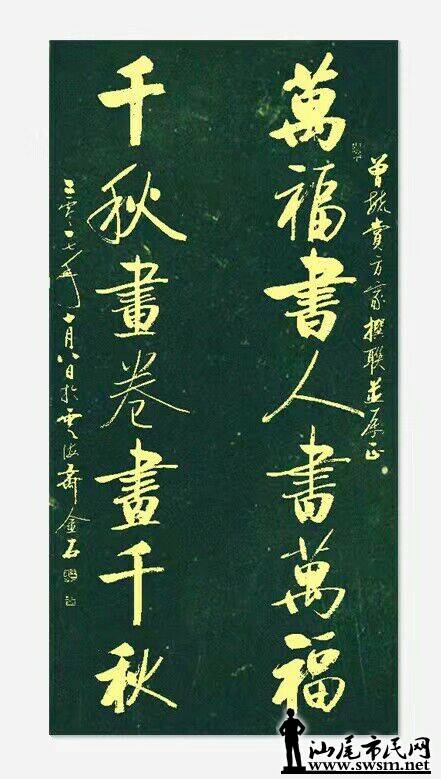 方家撰聯並屬正
萬福書人書萬福
千秋畫卷畫千秋
二零一七年十月八日於雲海齋金石
汕尾市民网
www.swsm.net